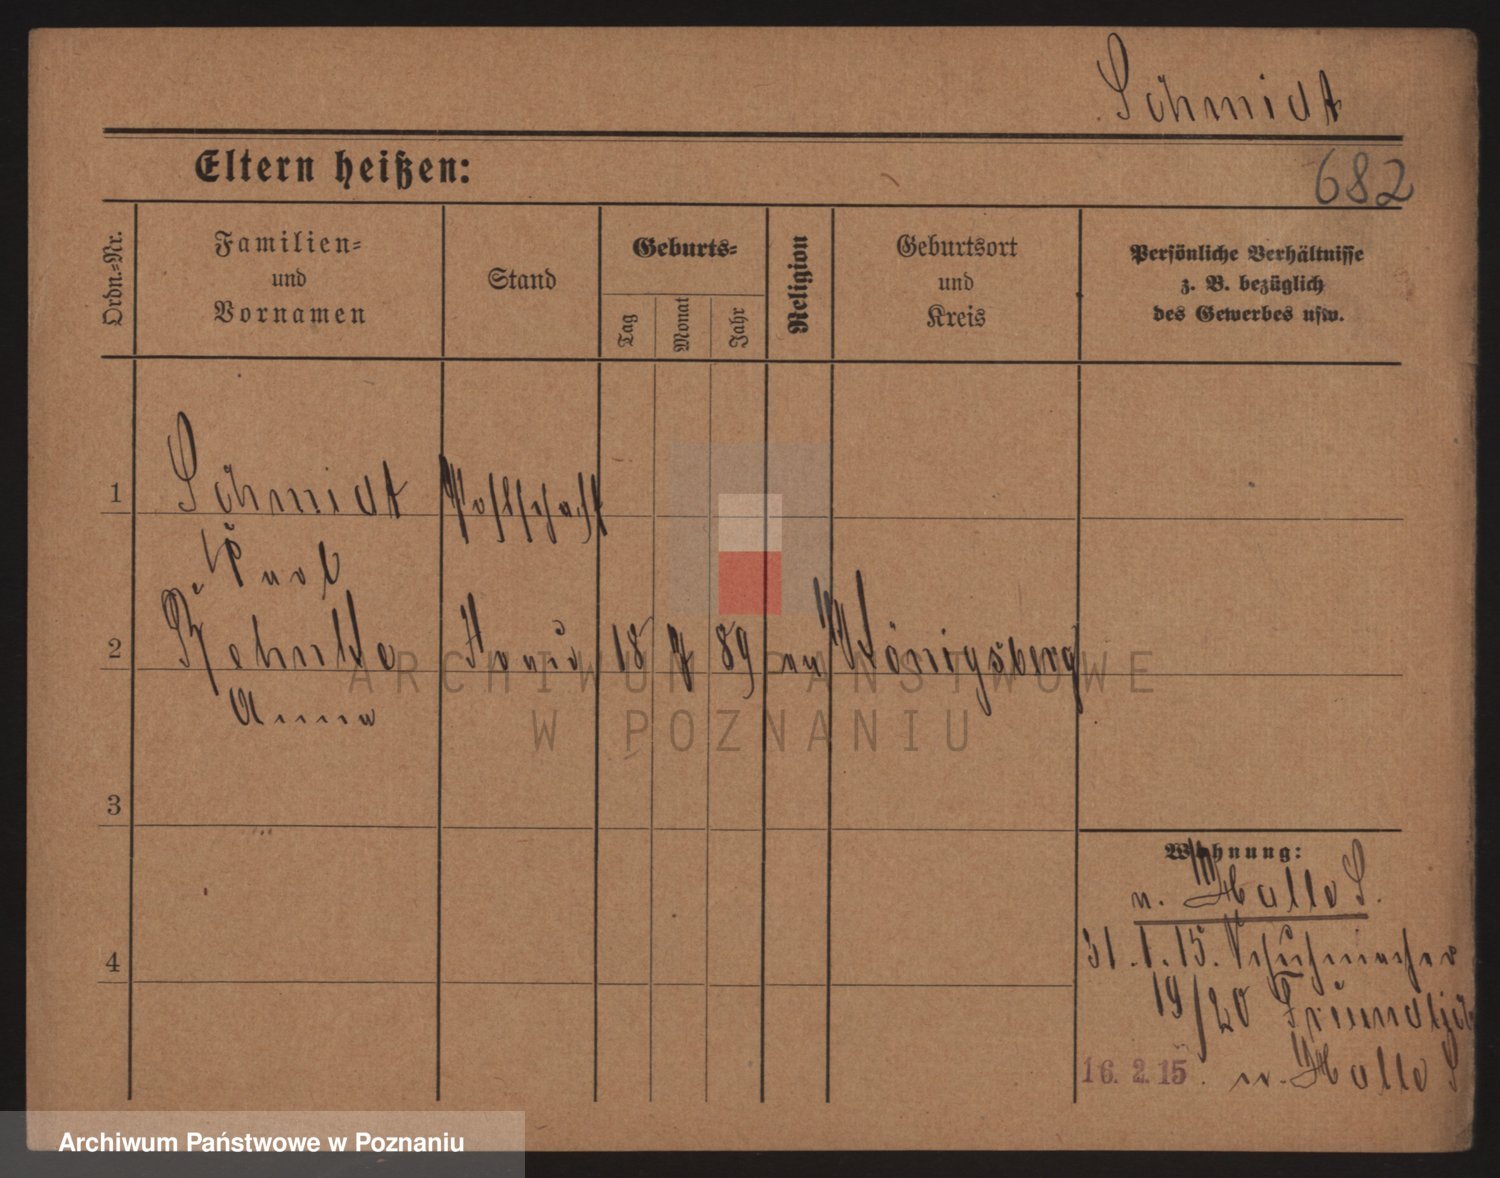 Schmidt
Eltern heißen:
682
Ordn.-Nr.
Familien-
und
Vornamen
Stand
Geburts-
Tag
Monat
Jahr
Religion
Geburtsort
und
Kreis
Persönliche Verhältnisse
z. B. bezüglich
des Gewerbes usw.
1
Schmidt
Paul
2
Anna
Frau
18
7
89
ev
Königsberg
3
4
Wohnung:
v. Halle S.
31.1.15. Schuhmacher
19/20 Freundlich
16. 2. 15. n. Halle S
ARCHIWUM PAŃSTWOWE
W POZNANIU
Archiwum Państwowe w Poznaniu